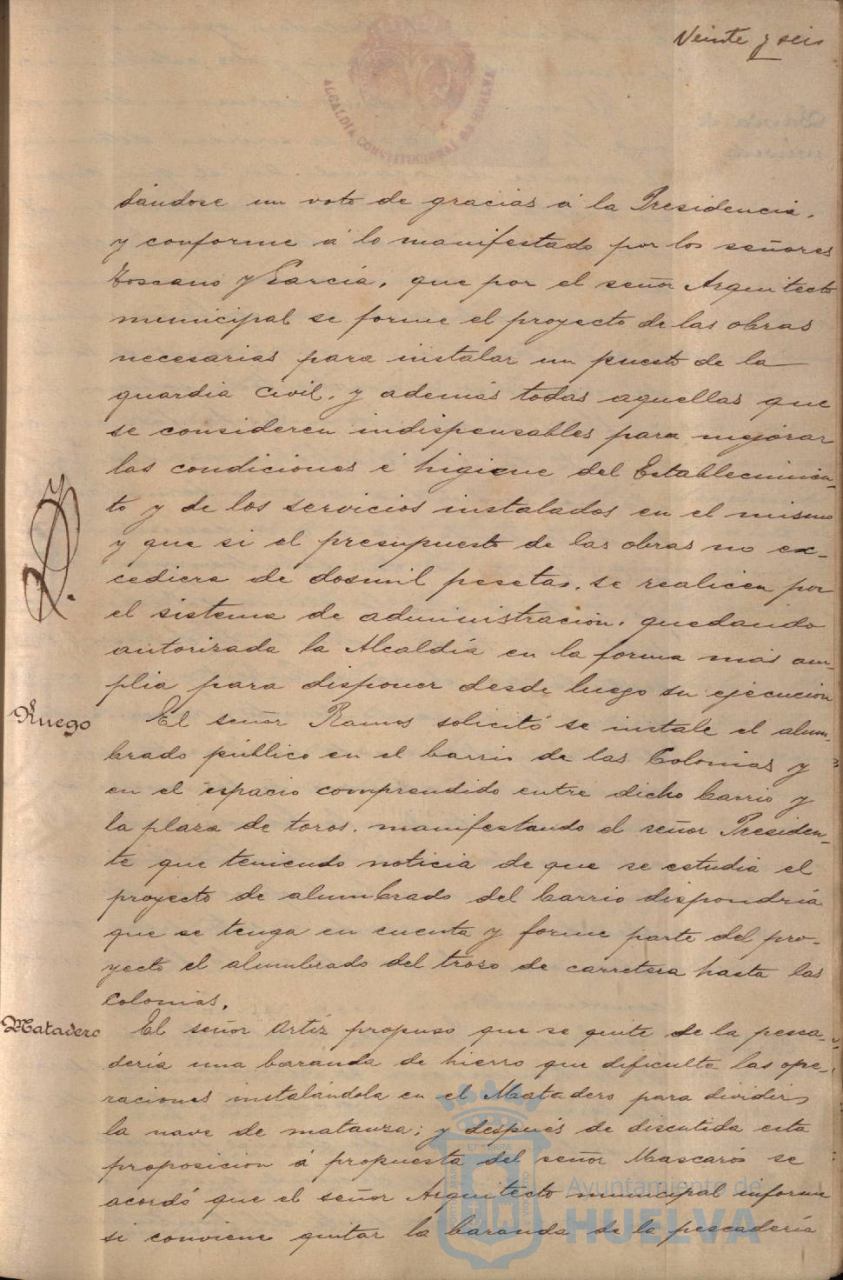 Veinte y seis
ALCALDÍA CONSTITUCIONAL DE HUELVA
dándose un voto de gracias á la Presidencia,
y conforme á lo manifestado por los señores
Toscano y García, que por el señor Arquitecto
municipal se forme el proyecto de las obras
necesarias para instalar un puesto de la
guardia civil, y además todas aquellas que
se consideren indispensables para mejorar
las condiciones é higiene del Establecimien-
to y de los servicios instalados en el mismo
y que si el presupuesto de las obras no ex-
cediere de dosmil pesetas, se realicen por
el sistema de administración, quedando
autorizada la Alcaldía en la forma más am-
plia para disponer desde luego su ejecución
Ruego
El señor Ramos solicitó se instale el alum-
brado público en el barrio de las Colonias y
en el espacio comprendido entre dicho barrio y
la plaza de toros, manifestando el señor Presiden-
te que teniendo noticia de que se estudia el
proyecto de alumbrado del barrio dispondría
que se tenga en cuenta y forme parte del pro-
yecto el alumbrado del trozo de carretera hasta las
Colonias.
Matadero
El señor Ortiz propuso que se quite de la pesca-
dería una baranda de hierro que dificulta las ope-
raciones instalándola en el Matadero para dividir
la nave de matanza; y después de discutida esta
proposición á propuesta del señor Mascarós se
acordó que el señor Arquitecto municipal informe
si conviene quitar la baranda de la pescadería
Ayuntamiento de
HUELVA